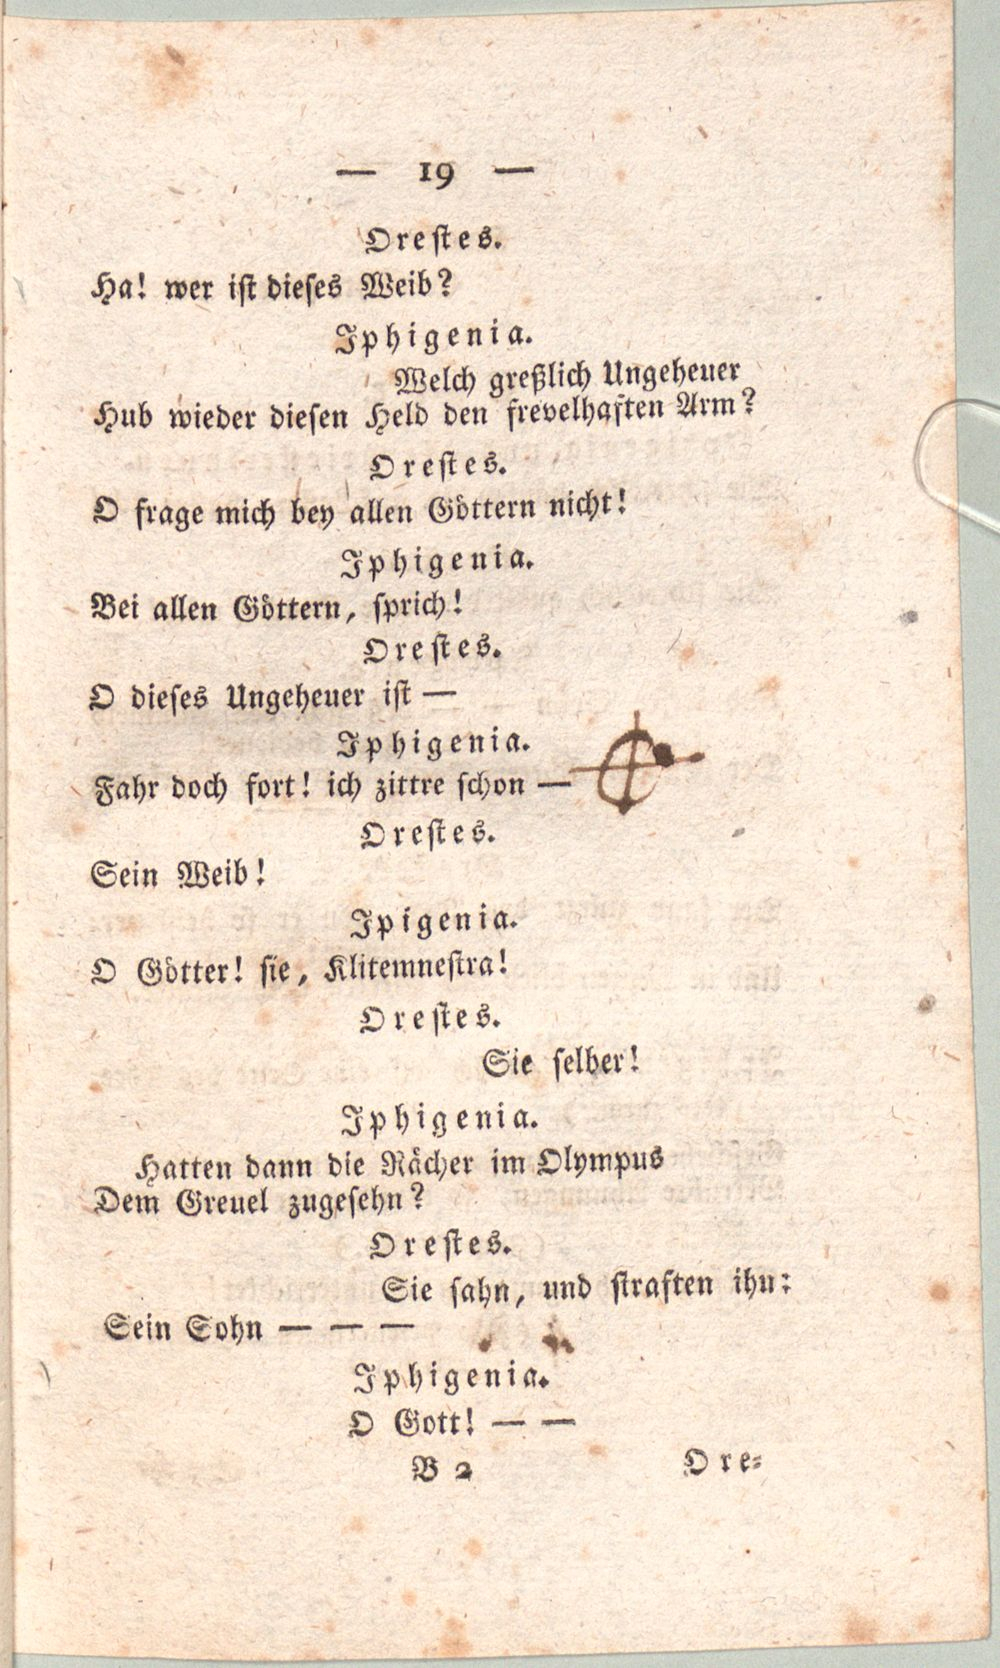 — 19 —
Orestes.
Ha! wer ist dieses Weib?
Iphigenia.
Welch greßlich Ungeheuer
Hub wieder diesen Held den frevelhaften Arm?
Orestes.
O frage mich bey allen Göttern nicht!
Iphigenia.
Bei allen Göttern, sprich!
Orestes.
O dieses Ungeheuer ist —
Iphigenia.
Fahr doch fort! ich zittre schon —
Orestes.
Sein Weib!
Ipigenia.
O Götter! sie, Klitemnestra!
Orestes.
Sie selber!
Iphigenia.
Hatten dann die Rächer im Olympus
Dem Greuel zugesehn?
Orestes.
Sie sahn, und straften ihn:
Sein Sohn — — —
Iphigenia.
O Gott! — —
B 2 Ore-